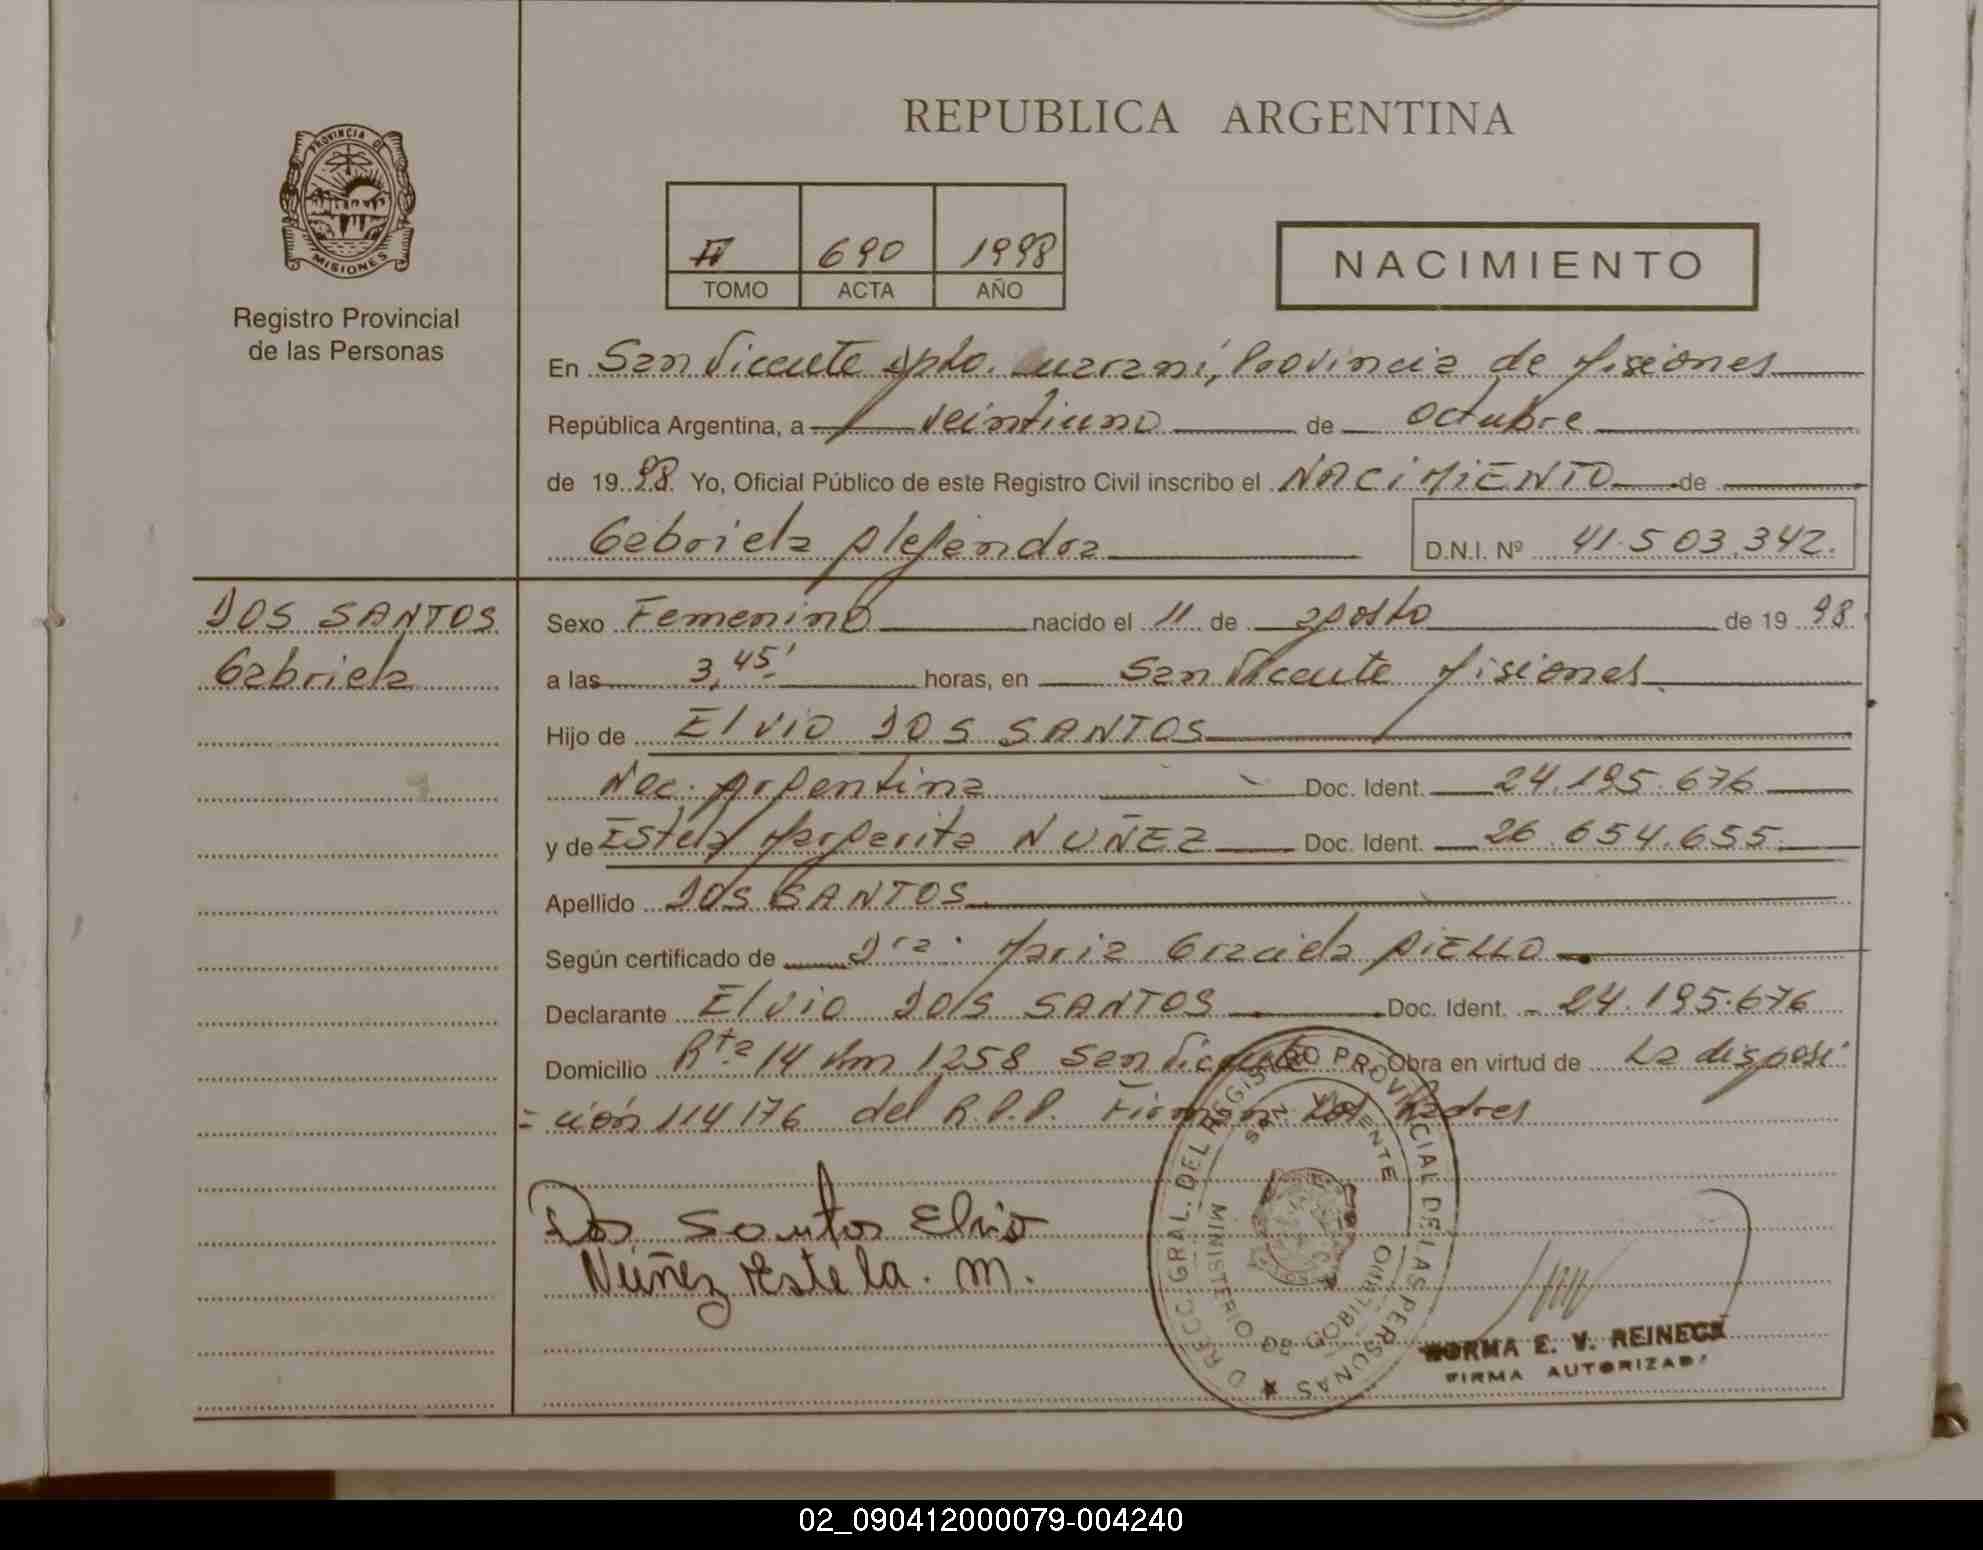 REPUBLICA ARGENTINA
PROVINCIA DE
MISIONES
Registro Provincial
de las Personas
IV 690 1998
TOMO ACTA AÑO
NACIMIENTO
En San Vicente Dpto. Guaraní, Provincia de Misiones
República Argentina, a veintiuno de octubre
de 1998 Yo, Oficial Público de este Registro Civil inscribo el NACIMIENTO de
Gabriela Alejandra D.N.I. Nº 41.503.342.
DOS SANTOS
Gabriela
Sexo Femenino nacido el 11 de agosto de 1998
a las 3,45' horas, en San Vicente Misiones
Hijo de Elvio DOS SANTOS
Nac. Argentina Doc. Ident. 24.195.676
y de Estela Margarita NUÑEZ Doc. Ident. 26.654.655
Apellido DOS SANTOS
Según certificado de Dra. Maria Graciela AIELLO
Declarante Elvio DOS SANTOS Doc. Ident. 24.195.676
Domicilio Rta 14 Km 1258 San Vicente Obra en virtud de La disposi
=ción 114176 del R.P.P. Firman los Padres
Dos Santos Elvio
Nuñez Estela. M.
DIRECC. GRAL. DEL REGISTRO PROVINCIAL DE LAS PERSONAS
SAN VICENTE
MINISTERIO DE GOBIERNO
NORMA E. V. REINECK
FIRMA AUTORIZADA
02_090412000079-004240